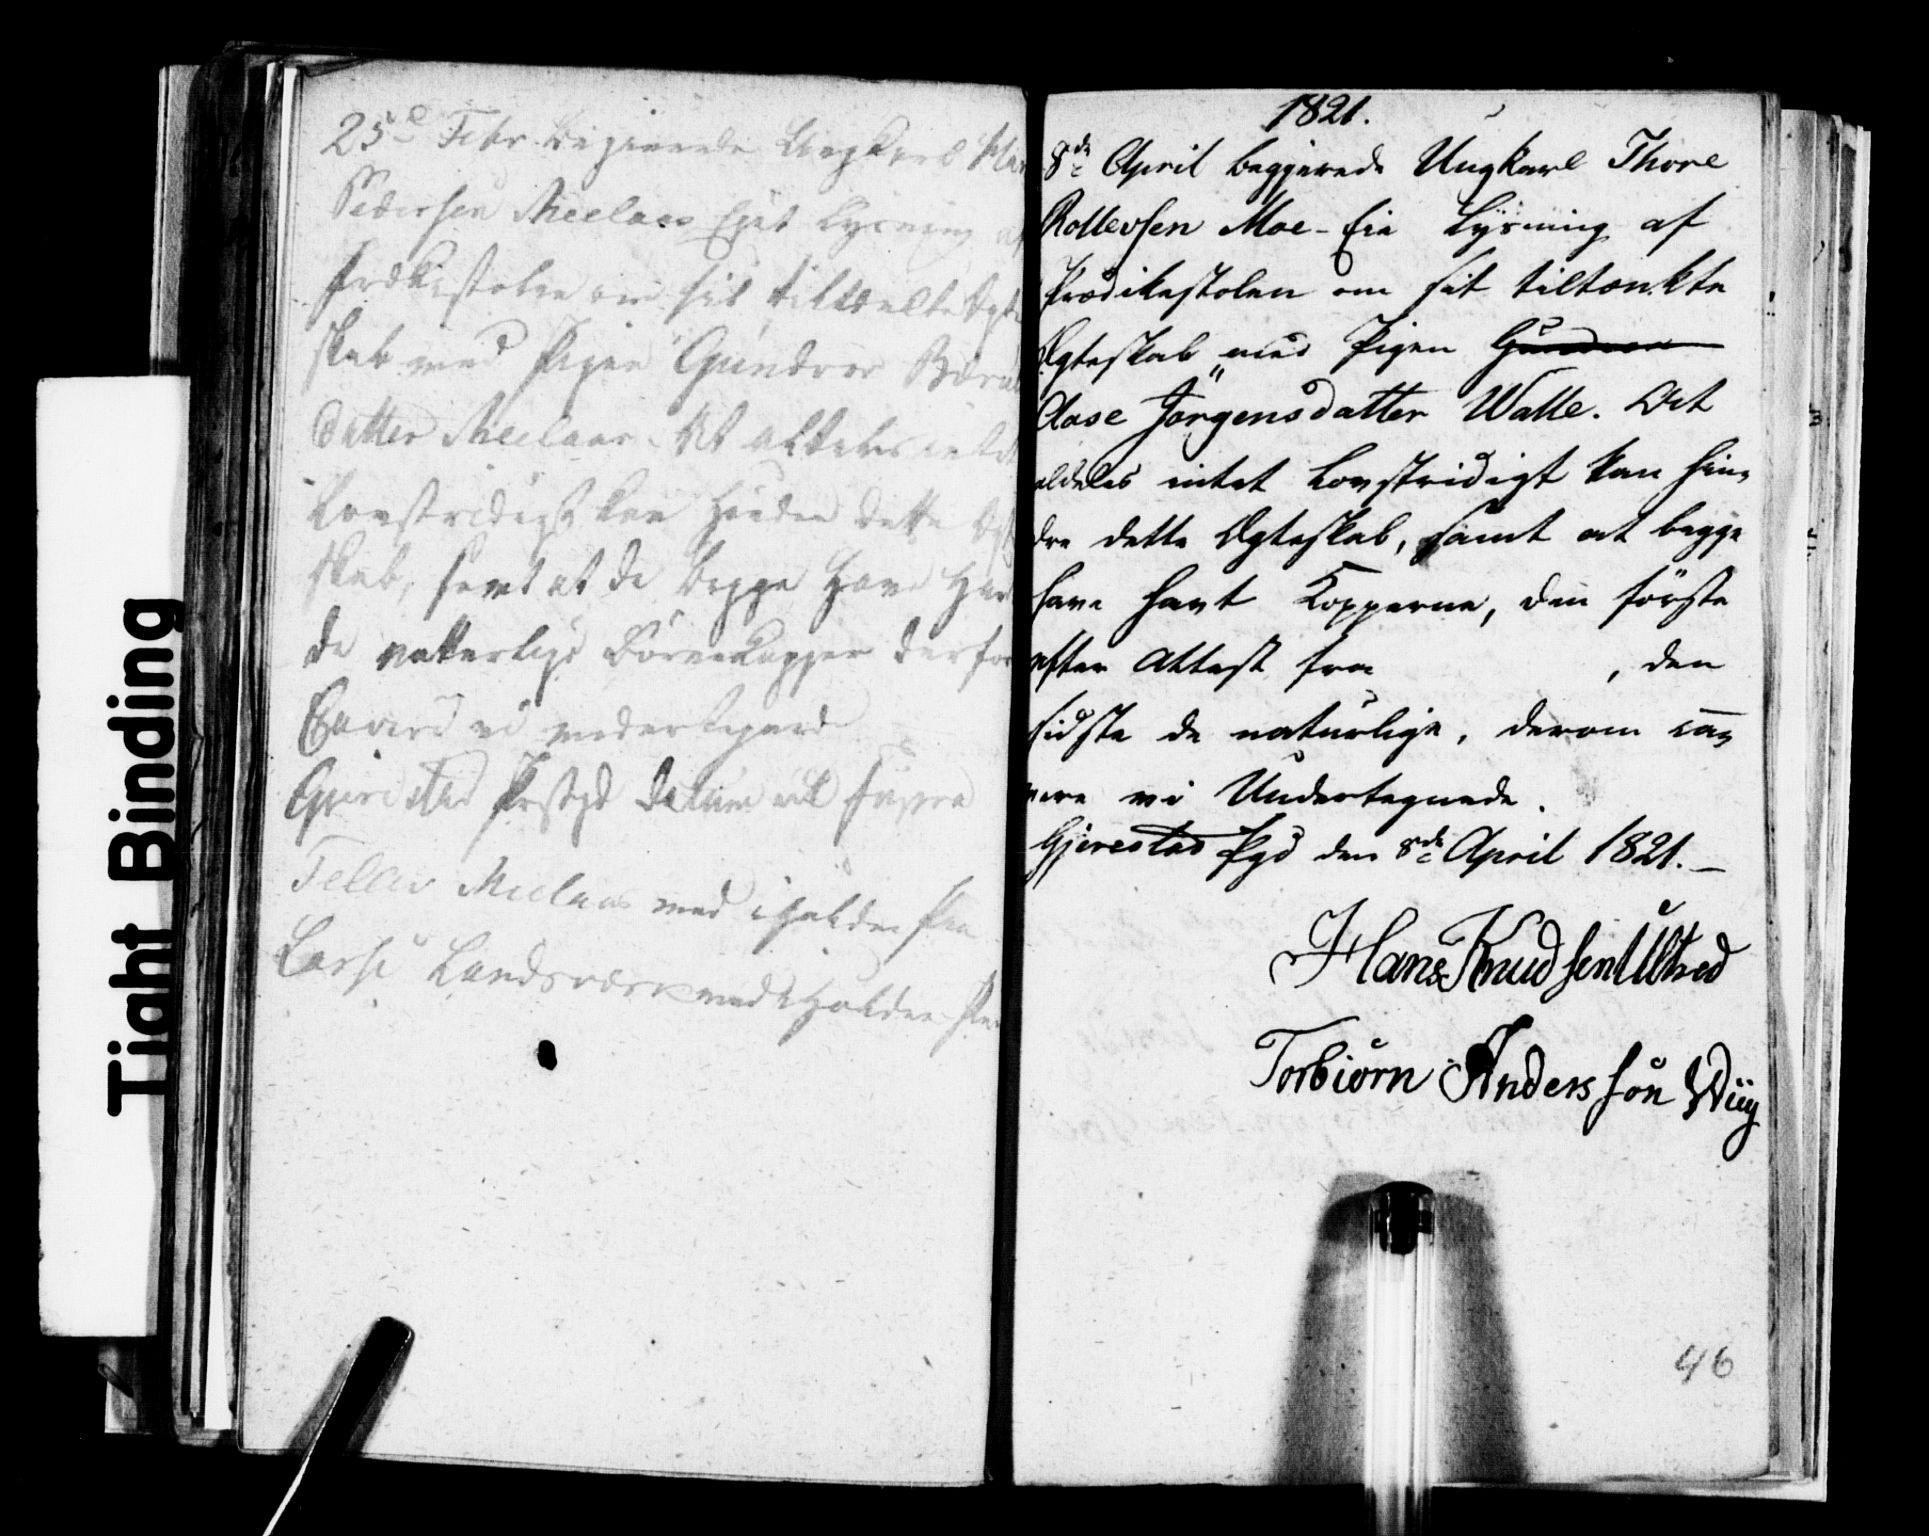 Tight Binding
25d Febr. begjerede Ungkarl
Pedersen Meelaas Eiet Lysning af
Prækestolen om sit tiltænkte Egte
skab med Pigen Gundror
datter Meelaas. At aldeles intet
Lovstridigt kan hinder dette
skab, samt at de begge have
de natterlige Børnekopper derfor
Caverer vi undertegnede
Gjerestad Prstgd datum ut supra
Tellev Meelaas med iholden Pen
Lars Landsværk med iholden Pen
1821.
8de April begjerede Ungkarl Thore
Rollevsen Moe - Eie Lysning af
Prædikestolen om sit tiltænkte
Egteskab med Pigen Gundror
Aase Jörgensdatter Walle. At
aldeles intet Lovstridigt kan hin-
dre dette Egteskab, samt at begge
have havt Kopperne, den förste
efter Attest fra , den
sidste de naturlige, derom ca-
vere vi Undertegnede.
Gjerestad Pgd den 8de April 1821. -
Hans Knudsen Ulltved
Torbiörn Anderssön Wiig
46